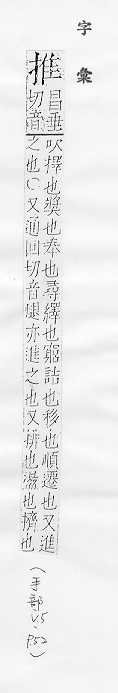 字彙
推
昌垂
切音
吹擇也奬也奉也尋繹也窮詰也移也順遷也又進
之也○又通回切音亦進之也又排也盪也擠也
(手部 V.5, P.52)